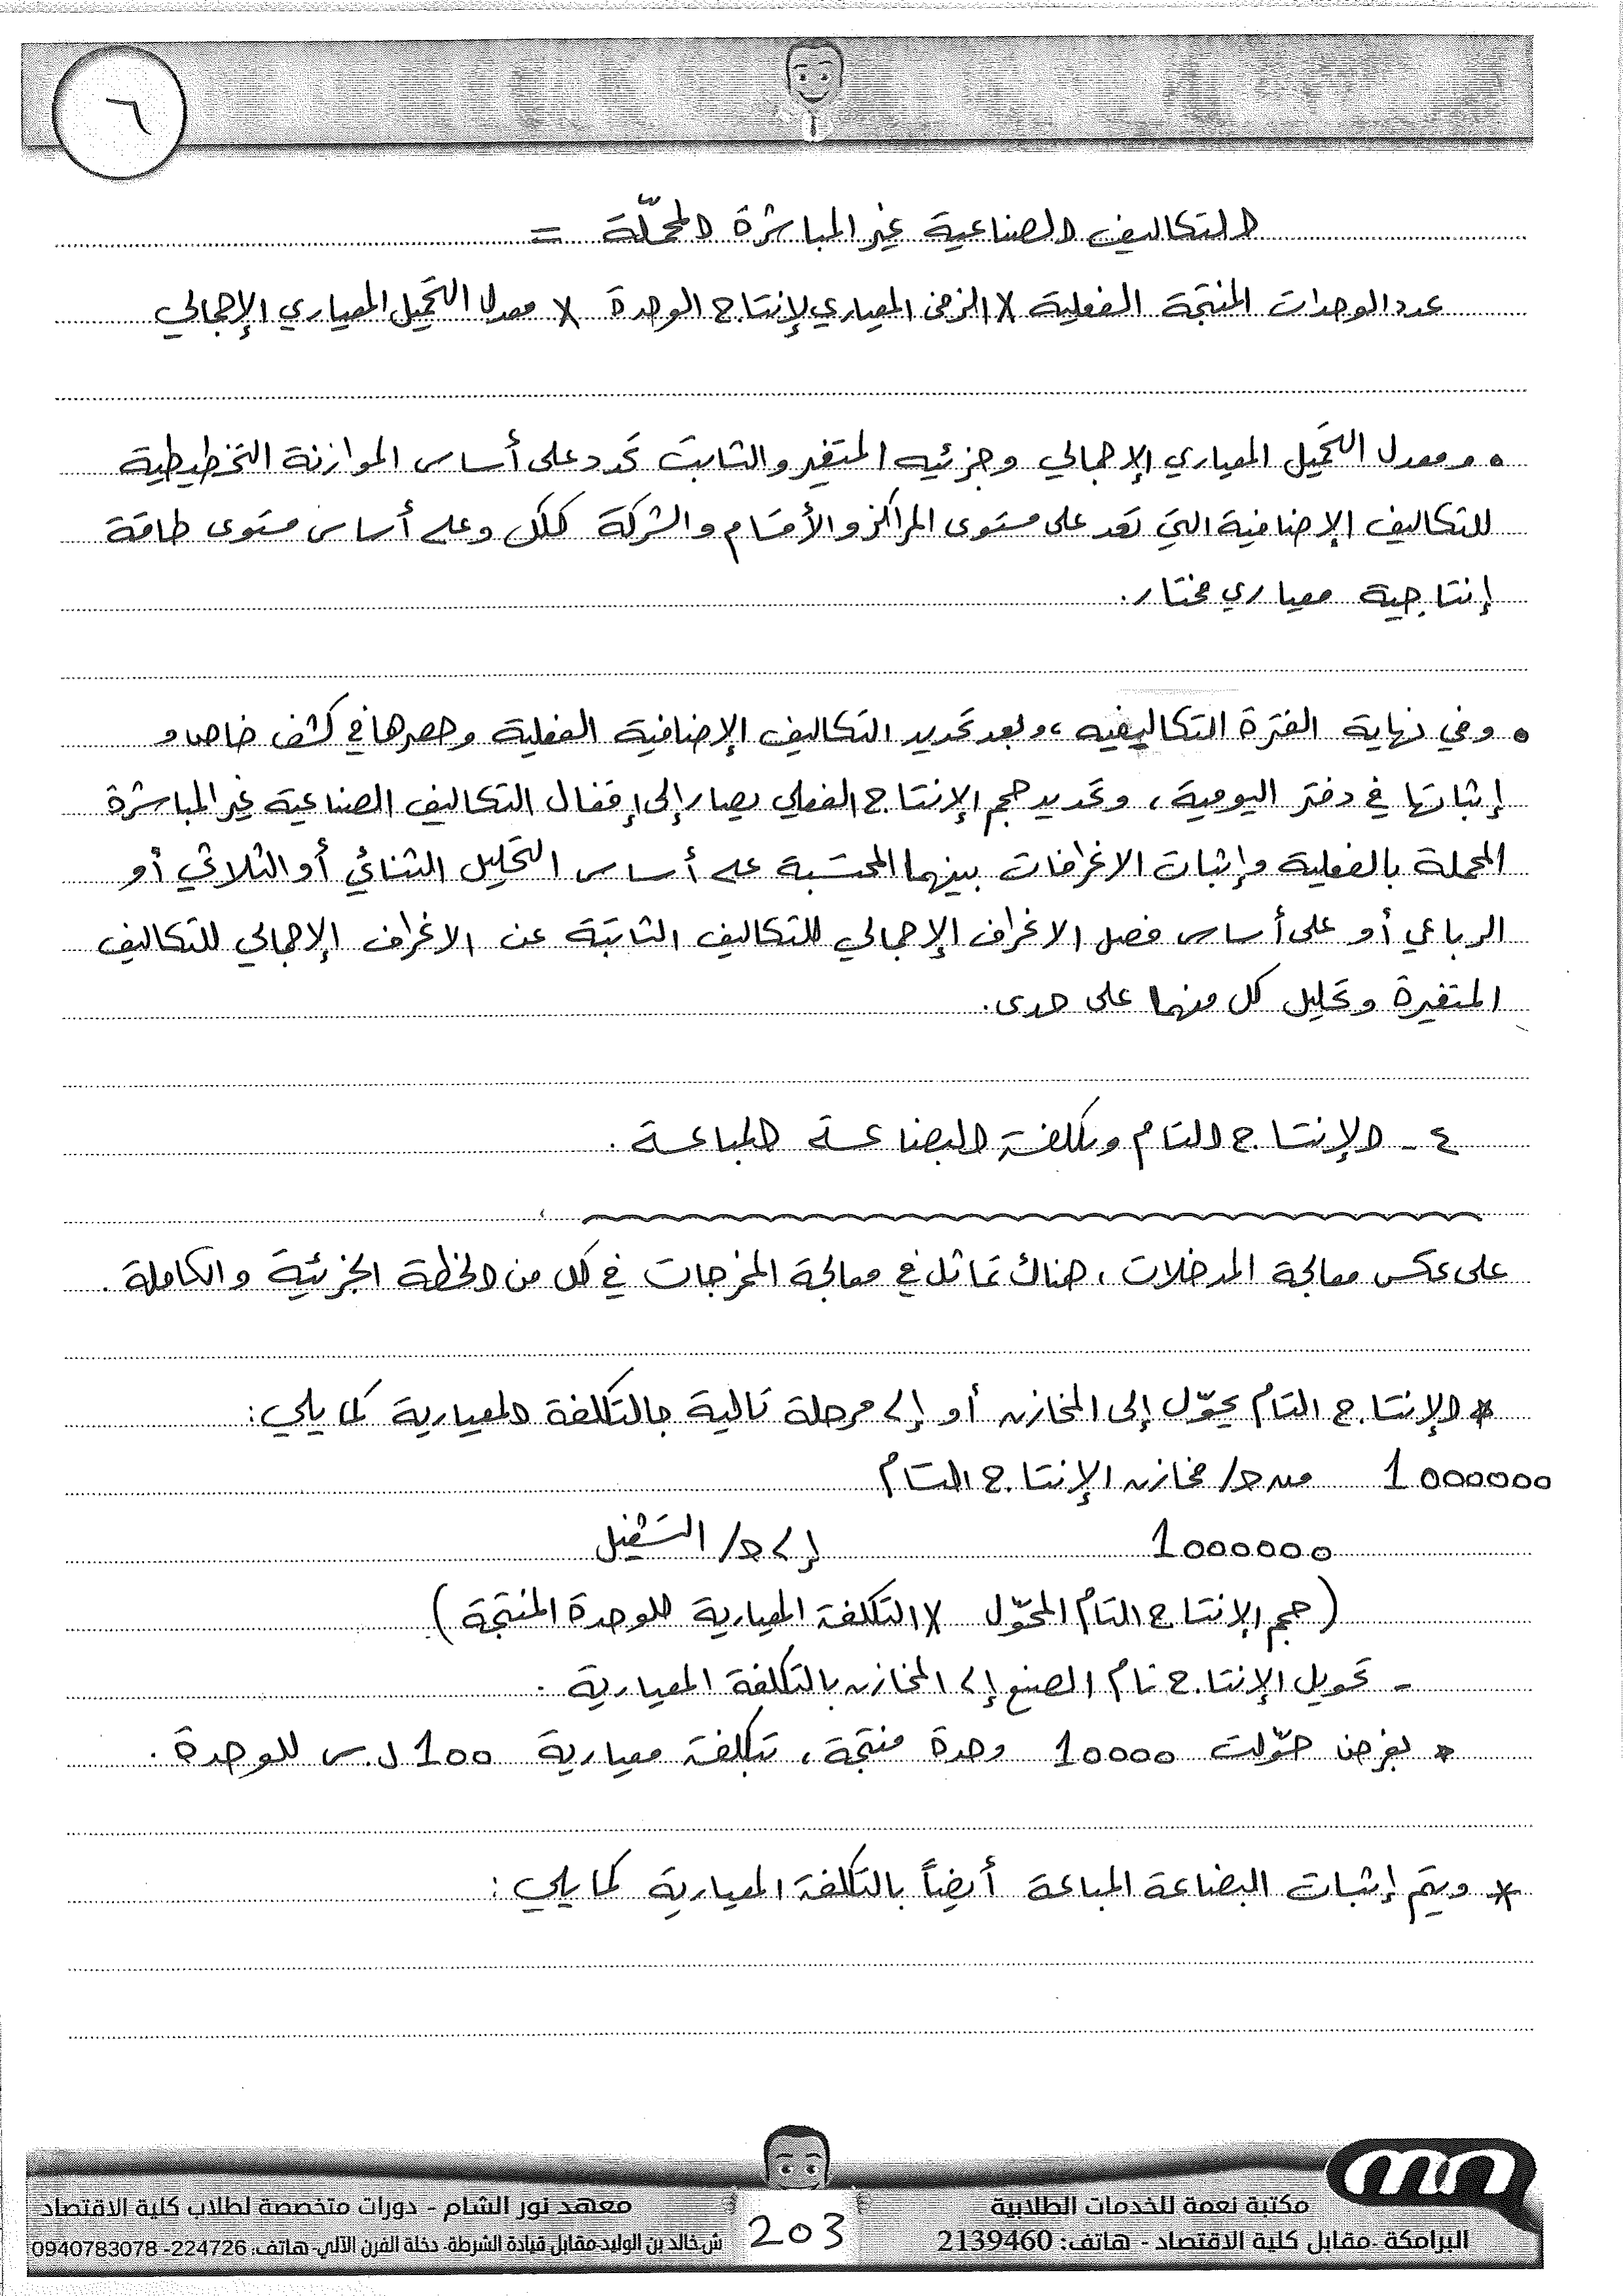 ٦
التكاليف الصناعية غير المباشرة المحمّلة =
عدد الوحدات المنتجة الفعلية × الزمن المعياري لإنتاج الوحدة × معدل التحميل المعياري الإجمالي
• ومعدل التحميل المعياري الإجمالي وجزئيه المتغير والثابت تحدد على أساس الموازنة التخطيطية
للتكاليف الإضافية التي تعد على مستوى المراكز والأقسام والشركة ككل وعلى أساس مستوى طاقة
إنتاجية معياري مختار.
• وفي نهاية الفترة التكاليفيه، وبعد تحديد التكاليف الإضافية الفعلية وحصرها في كشف خاص و
إثباتها في دفتر اليومية، وتحديد حجم الإنتاج الفعلي يصار إلى إقفال التكاليف الصناعية غير المباشرة
المحملة بالفعلية وإثبات الانحرافات بينهما المحتسبة على أساس التحليل الثنائي أو الثلاثي أو
الرباعي أو على أساس فصل الانحراف الإجمالي للتكاليف الثابتة عن الانحراف الإجمالي للتكاليف
المتغيرة وتحليل كل منهما على حدى.
٤ - الإنتاج التام وتكلفة البضاعة المباعة .
على عكس معالجة المدخلات، هناك تماثل في معالجة المخرجات في كل من الخطة الجزئية والكاملة .
* الإنتاج التام يحوّل إلى المخازن أو إلى مرحلة تالية بالتكلفة المعيارية كما يلي:
1000000 من ح/ مخازن الإنتاج التام
1000000 إلى ح/ التشغيل
(حجم الإنتاج التام المحوّل × التكلفة المعيارية للوحدة المنتجة)
- تحويل الإنتاج تام الصنع إلى المخازن بالتكلفة المعيارية .
* بفرض حوّلت 10000 وحدة منتجة، بتكلفة معيارية 100 ل.س للوحدة .
* ويتم إثبات البضاعة المباعة أيضاً بالتكلفة المعيارية كما يلي :
مكتبة نعمة للخدمات الطلابية
البرامكة -مقابل كلية الاقتصاد - هاتف: 2139460
203
معهد نور الشام - دورات متخصصة لطلاب كلية الاقتصاد
ش.خالد بن الوليد-مقابل قيادة الشرطة- دخلة الفرن الآلي-هاتف: 224726- 0940783078